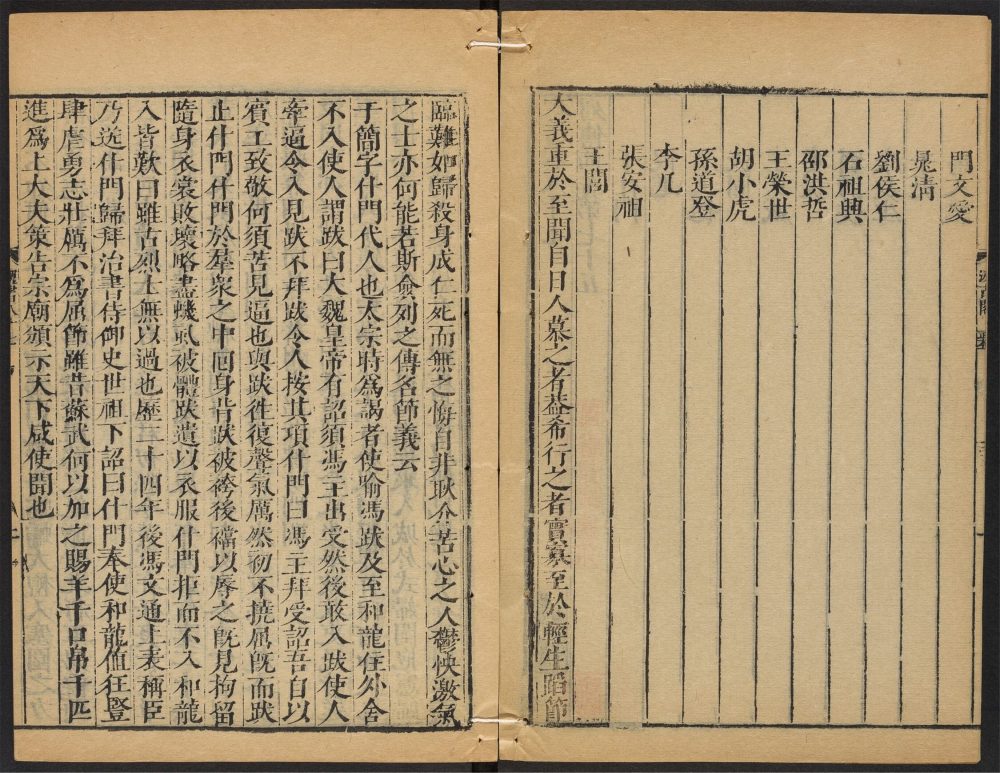 門文愛
晁淸
劉侯仁
石祖興
邵洪哲
王榮世
胡小虎
孫道登
李几
張安祖
王閭
大義重於至聞自日人慕之者蓋希行之者實寡至於輕生蹈節
臨難如歸殺身成仁死而無之悔自非耿介苦心之人鬱怏激氣
之士亦何能若斯僉列之傳名節義云
于簡字什門代人也太宗時爲謁者使喻馮跋及至和龍住外舍
不入使人謂跋曰大魏皇帝有詔須馮主出受然後敢入跋使人
牽逼令入見跋不拜跋令人按其項什門曰馮主拜受詔吾自以
賓主致敬何須苦見逼也與跋往復聲氣厲然初不撓屈旣而跋
止什門什門於羣衆之中回身背跋被袴後襠以辱之旣見拘留
隨身衣裳敗壞略盡蟣虱被體跋遺以衣服什門拒而不入和龍
人皆歎曰雖古烈士無以過也歷二十四年後馮文通上表稱臣
乃送什門歸拜治書侍御史世祖下詔曰什門奉使和龍値狂豎
肆虐勇志壯厲不爲屈節雖昔蘇武何以加之賜羊千口帛千匹
進爲上大夫策告宗廟頒示天下咸使聞也